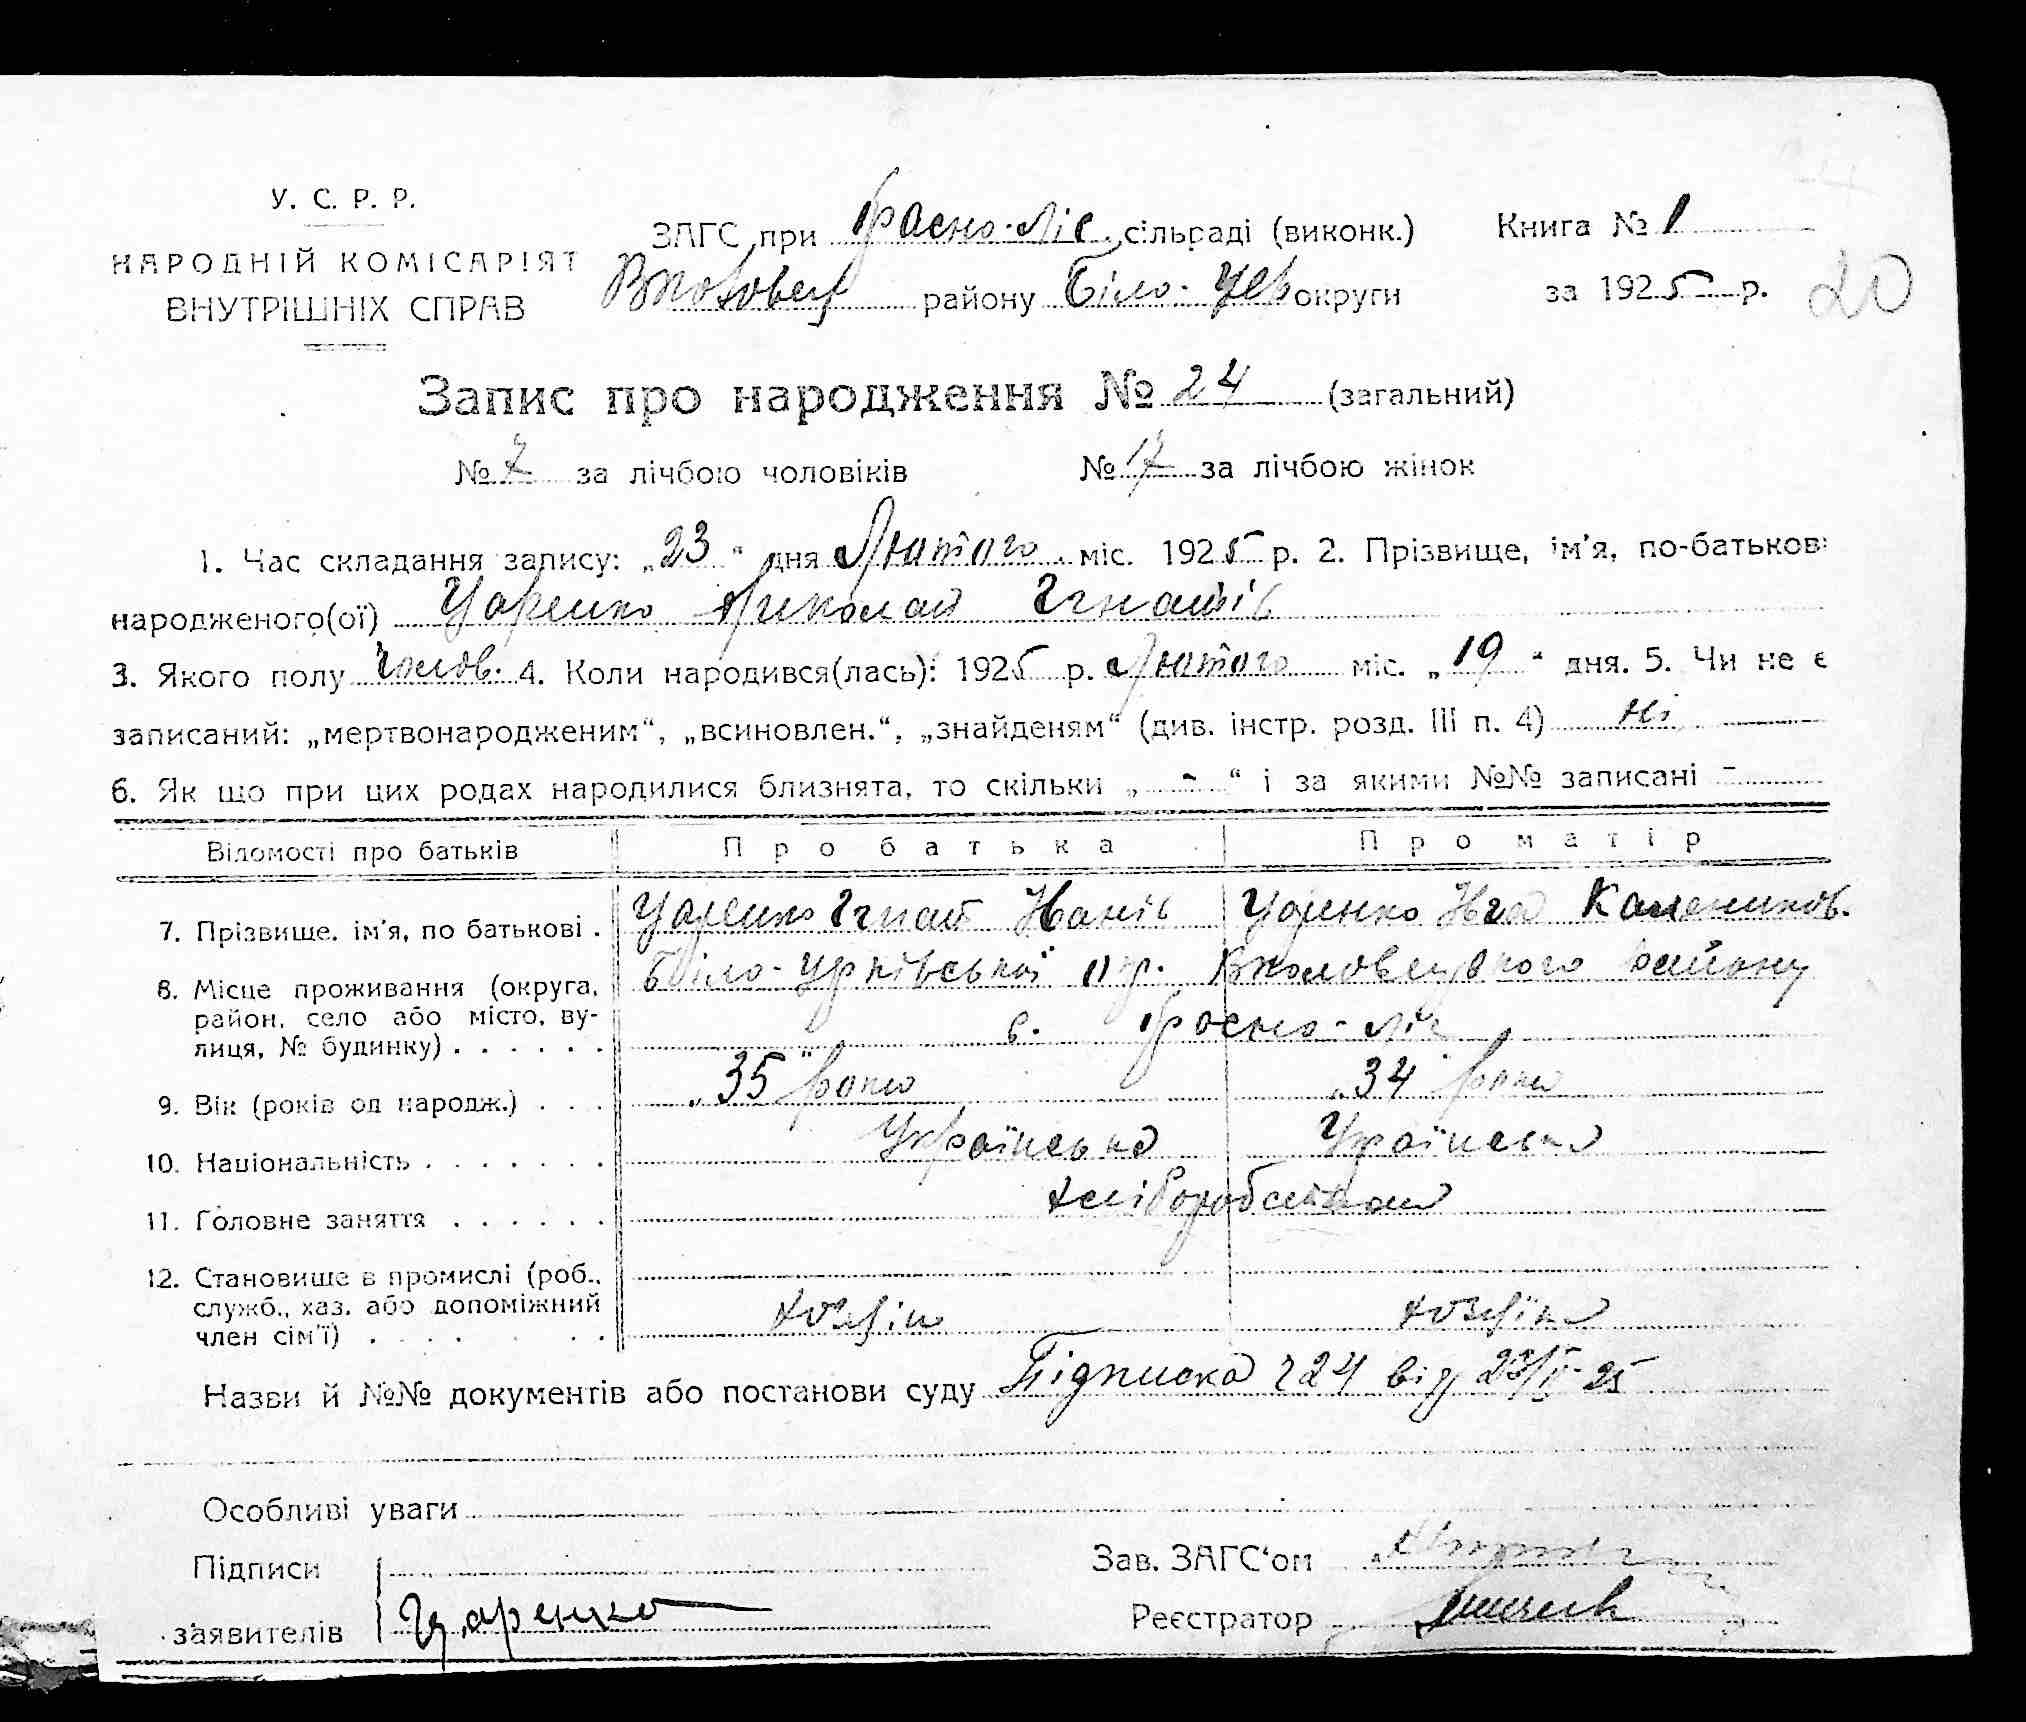 У. С. Р. Р.
НАРОДНІЙ КОМІСАРІЯТ
ВНУТРІШНІХ СПРАВ
ЗАГС при Красно-Ліс. сільраді (виконк.)
району Біло-Цер округи
Книга № 1
за 1925 р.
20
Запис про народження № 24 (загальний)
№ 7 за лічбою чоловіків № 17 за лічбою жінок
1. Час складання запису: „23“ дня Лютого міс. 1925 р. 2. Прізвище, ім'я, по-батькові
народженого(ої) Царенко Николай Ігнатів
3. Якого полу Чолов. 4. Коли народився(лась): 1925 р. Лютого міс. „19“ дня. 5. Чи не є
записаний: „мертвонародженим“, „всиновлен.“, „знайденям“ (див. інстр. розд. III п. 4) ні
6. Як що при цих родах народилися близнята, то скільки „ - “ і за якими №№ записані -
Відомості про батьків Про батька Про матір
7. Прізвище, ім'я, по батькові . Царенко Ігнат Іванів Царенко
8. Місце проживання (округа, Біло-Церківської окр. району
район, село або місто, ву- с. Красно-Ліс
лиця, № будинку) . . . . . .
9. Вік (років од народж.) . . . „35“ років „34“ роки
10. Національність . . . . . . . Українська Українська
11. Головне заняття . . . . . . хліборобство
12. Становище в промислі (роб.,
служб., хаз. або допоміжний
член сім'ї) . . . . . хозяїн хозяїна
Назви й №№ документів або постанови суду Підписка ч 24 від 23/II-25
Особливі уваги
Підписи
заявителів Царенко
Зав. ЗАГС‘ом
Реєстратор